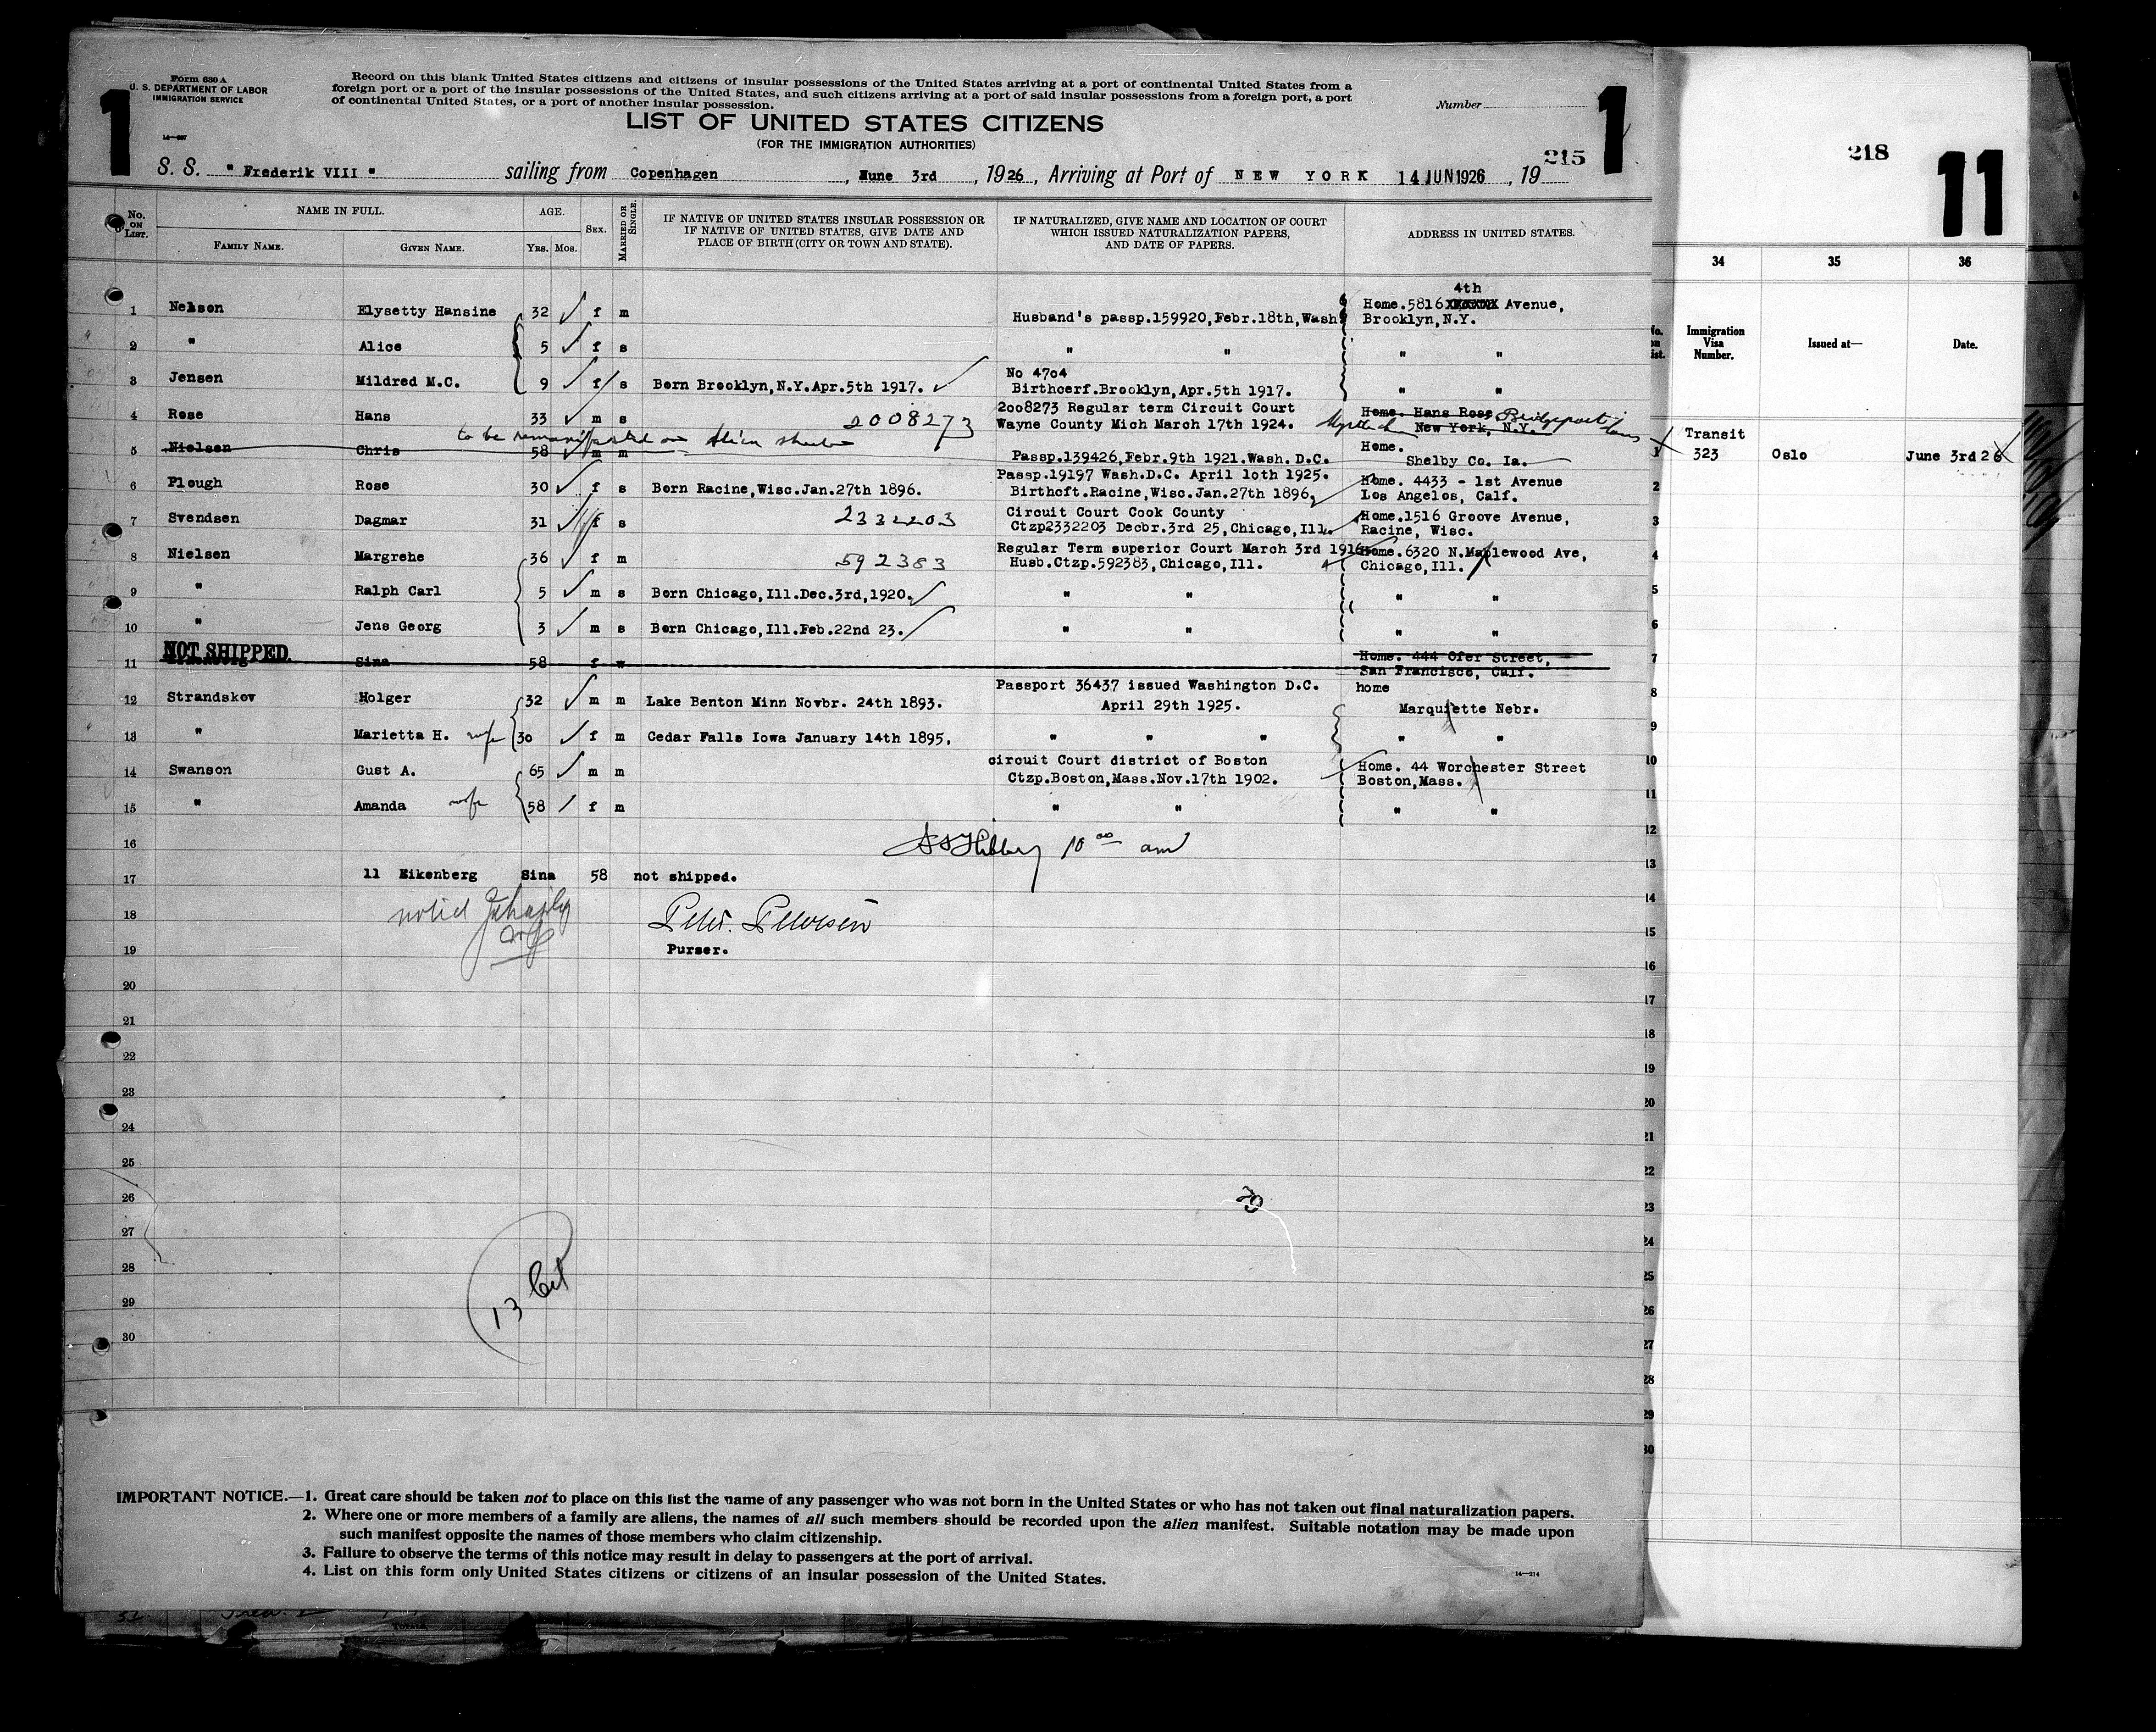 Form 630 A
U. S. DEPARTMENT OF LABOR
IMMIGRATION SERVICE
Record on this blank United States citizens and citizens of insular possessions of the United States arriving at a port of continental United States from a
foreign port or a port of the insular possessions of the United States, and such citizens arriving at a port of said insular possessions from a foreign port, a port
of continental United States, or a port of another insular possession.
Number
1
1
LIST OF UNITED STATES CITIZENS
(FOR THE IMMIGRATION AUTHORITIES)
215
S. S. " Frederik VIII " sailing from Copenhagen, June 3rd, 1926, Arriving at Port of NEW YORK 14 JUN 1926, 19
No. ON LIST. NAME IN FULL. AGE. SEX. MARRIED OR SINGLE. IF NATIVE OF UNITED STATES INSULAR POSSESSION OR IF NATIVE OF UNITED STATES, GIVE DATE AND PLACE OF BIRTH (CITY OR TOWN AND STATE). IF NATURALIZED, GIVE NAME AND LOCATION OF COURT WHICH ISSUED NATURALIZATION PAPERS, AND DATE OF PAPERS. ADDRESS IN UNITED STATES.
FAMILY NAME. GIVEN NAME. YRS. MOS.
4th
1 Nelson Elysetty Hansine 32 f m Husband's passp.159920,Febr.18th,Wash. Home.5816 Avenue,
Brooklyn,N.Y.
2 " Alice 5 f s " " " "
No 4704
3 Jensen Mildred M.C. 9 f s Born Brooklyn,N.Y.Apr.5th 1917. Birthcerf.Brooklyn,Apr.5th 1917. " "
2oo8273 Regular term Circuit Court Home. Hans Rose Bridgeport
4 Rose Hans 33 m s 2008273 Wayne County Mich March 17th 1924. New York, N.Y.
to be remanifested on Alien sheet
Home.
5 Nielsen Chris 58 m m Passp.139426,Febr.9th 1921.Wash. D.C. Shelby Co. Ia.
Passp.19197 Wash.D.C. April 1oth 1925. Home. 4433 - 1st Avenue
6 Plough Rose 30 f s Born Racine,Wisc.Jan.27th 1896. Birthcft.Racine,Wisc.Jan.27th 1896. Los Angelos, Calf.
Circuit Court Cook County Home.1516 Groove Avenue,
7 Svendsen Dagmar 31 f s 2332203 Ctzp2332203 Decbr.3rd 25,Chicago,Ill. Racine, Wisc.
Regular Term superior Court March 3rd 1916 Home.6320 N.Maplewood Ave,
8 Nielsen Margrehe 36 f m 592383 Husb.Ctzp.592383,Chicago,Ill. Chicago,Ill.
9 " Ralph Carl 5 m s Born Chicago,Ill.Dec.3rd,1920. " " " "
10 " Jens Georg 3 m s Born Chicago,Ill.Feb.22nd 23. " " " "
NOT SHIPPED.
11 Sina 58 f w Home. 444 Ofer Street,
San Francisco, Calf.
Passport 36437 issued Washington D.C. home
12 Strandskov Holger 32 m m Lake Benton Minn Novbr. 24th 1893. April 29th 1925. Marquiette Nebr.
13 " Marietta H. wife 30 f m Cedar Falls Iowa January 14th 1895. " " " " "
circuit Court district of Boston Home. 44 Worchester Street
14 Swanson Gust A. 65 m m Ctzp.Boston,Mass.Nov.17th 1902. Boston,Mass.
15 " Amanda wife 58 f m " " " "
16 10 00 am
17 11 Eikenberg Sina 58 not shipped.
18 Peter Petersen
19 Purser.
20
21
22
23
24
25
26
27
28
29
30
13 Cit
IMPORTANT NOTICE.—1. Great care should be taken not to place on this list the name of any passenger who was not born in the United States or who has not taken out final naturalization papers.
2. Where one or more members of a family are aliens, the names of all such members should be recorded upon the alien manifest. Suitable notation may be made upon
such manifest opposite the names of those members who claim citizenship.
3. Failure to observe the terms of this notice may result in delay to passengers at the port of arrival.
4. List on this form only United States citizens or citizens of an insular possession of the United States.
14—214
218
11
34 35 36
Immigration Visa Number. Issued at— Date.
Transit
1 323 Oslo June 3rd 26
2
3
4
5
6
7
8
9
10
11
12
13
14
15
16
17
18
19
20
21
22
23
24
25
26
27
28
29
30